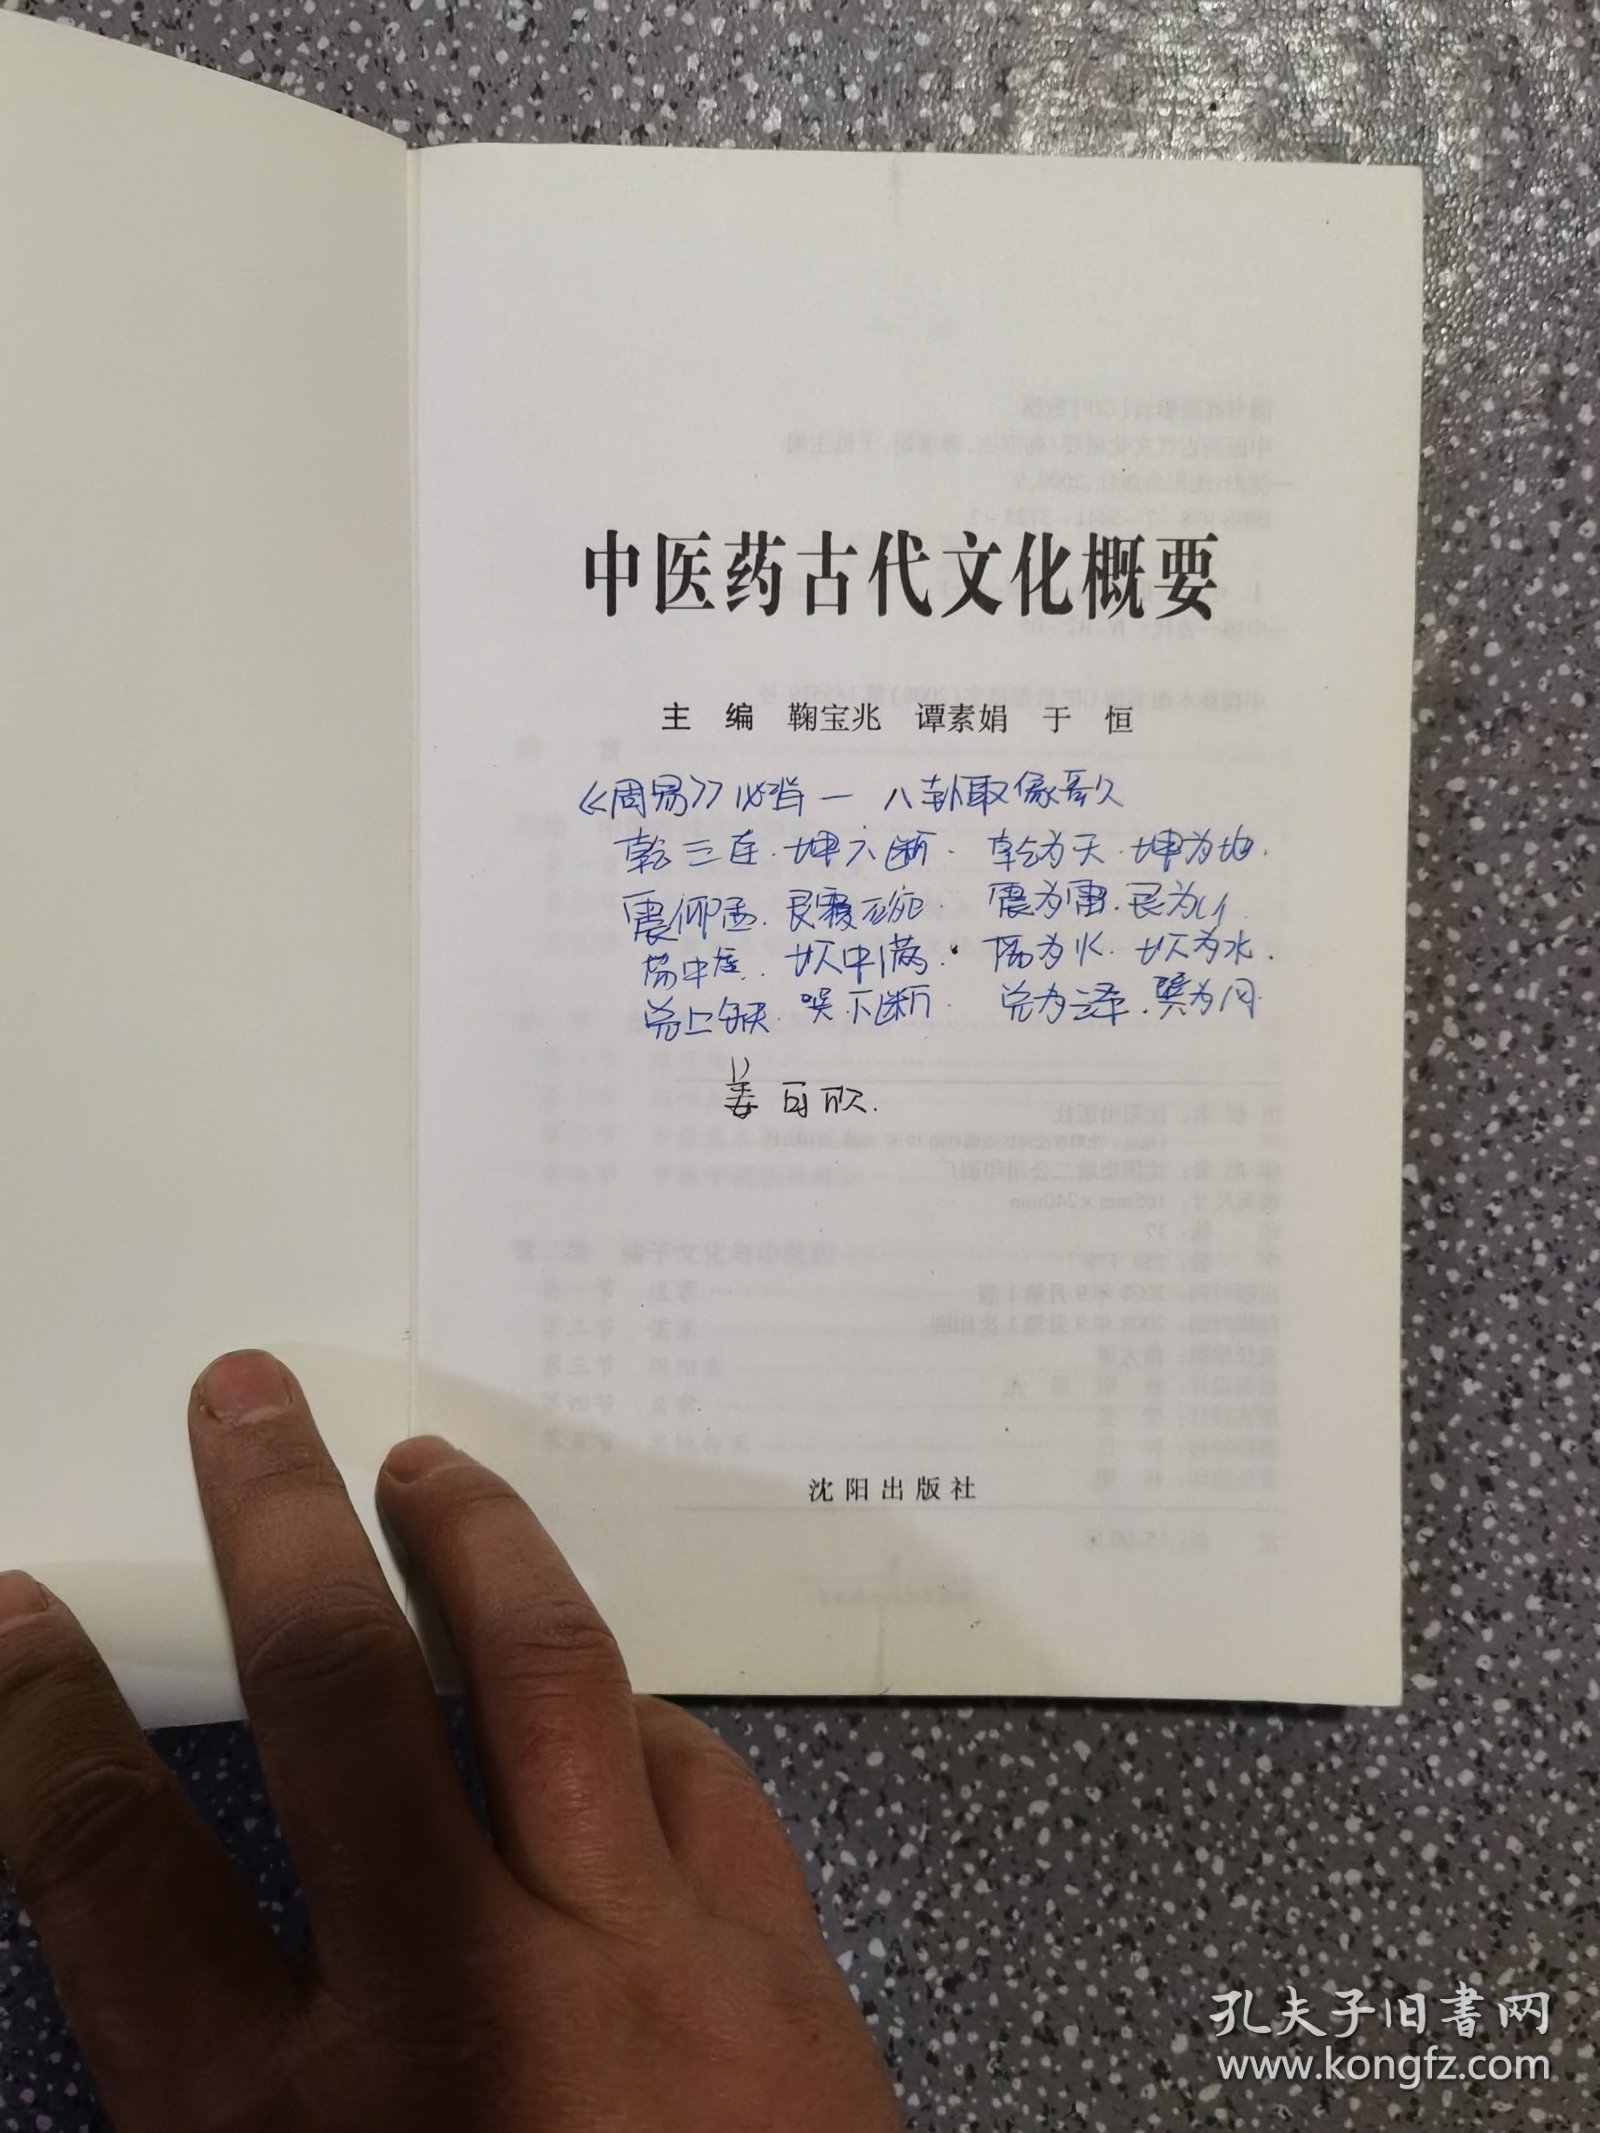 中医药古代文化概要
主 编 鞠宝兆 谭素娟 于 恒
《周易》必背一 八卦取像歌
乾三连.坤六断. 乾为天.坤为地.
震仰盂.艮覆碗. 震为雷.艮为山.
离中虚.坎中满. 离为火.坎为水.
兑上缺.巽下断. 兑为泽.巽为风.
姜可欣.
沈阳出版社
孔夫子旧书网
www.kongfz.com